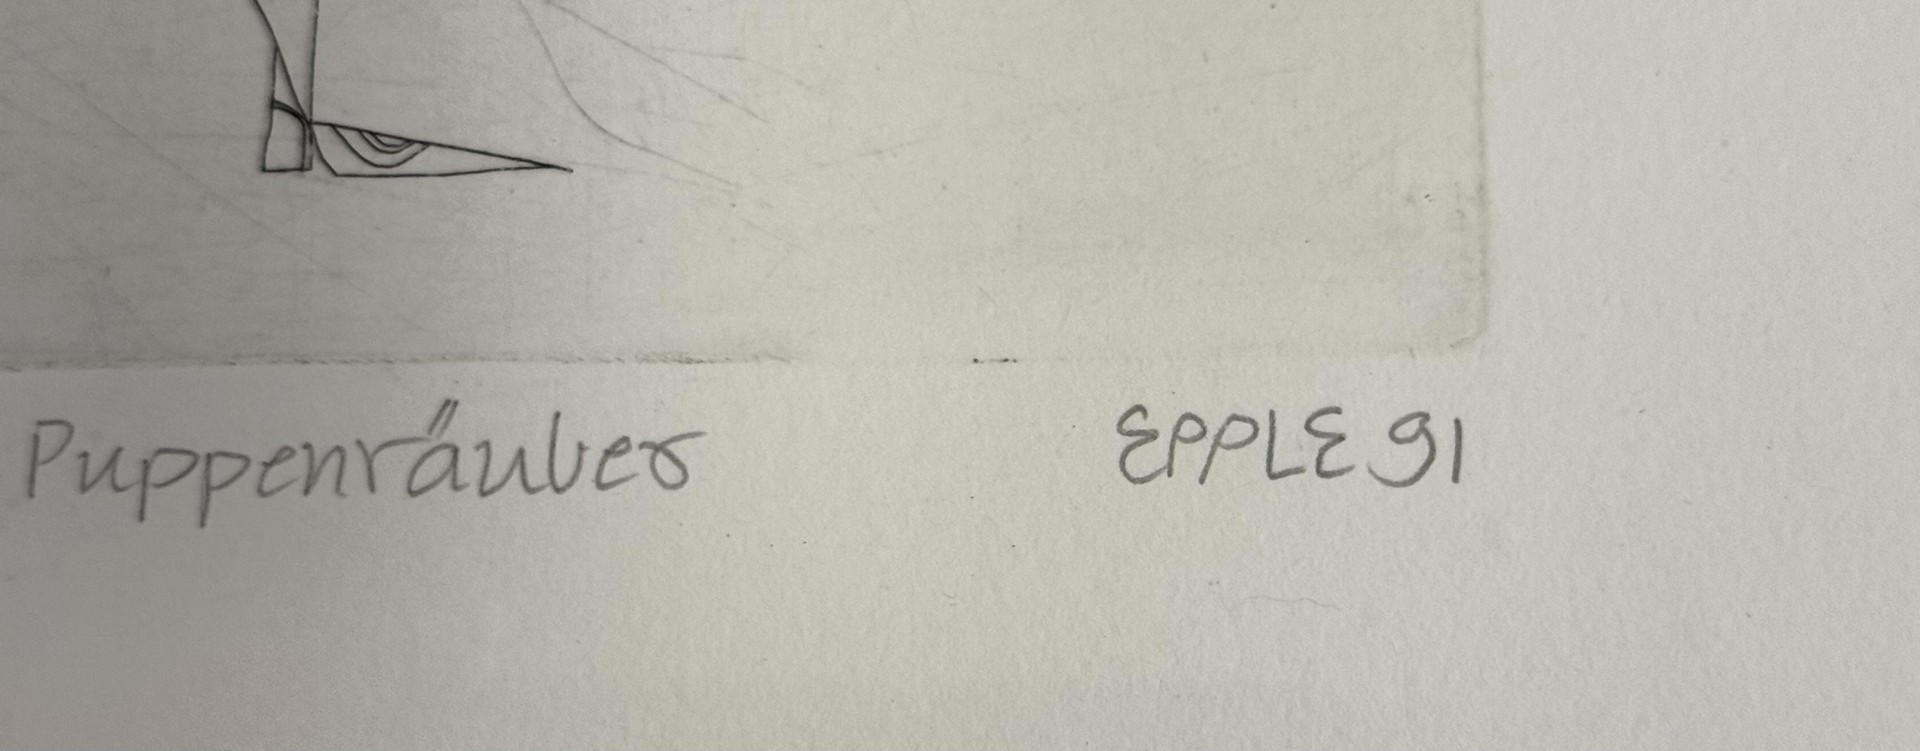 Puppenräuber EPPLE 91